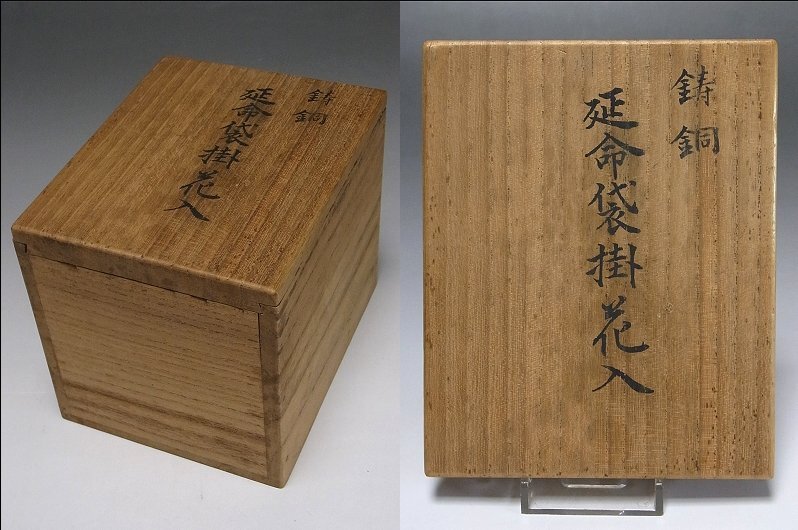 鋳銅
延命袋掛花入
鋳銅
延命袋掛花入